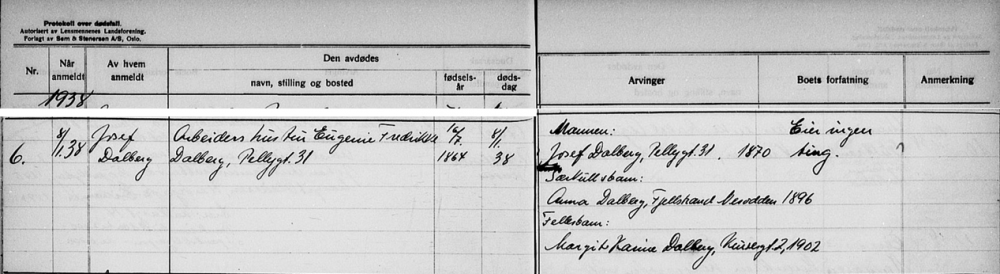 Protokoll over dødsfall.
Autorisert av Lensmennenes Landsforening.
Forlagt av Sem & Stenersen A/S, Oslo.
Nr.
Når anmeldt
Av hvem anmeldt
Den avdødes
navn, stilling og bosted
fødsels-år
døds-dag
Arvinger
Boets forfatning
Anmerkning
1938
6.
8/1.38
Josef Dalberg
Arbeiders hustru Eugenie Fredrikke
Dalberg, Pellygt. 31
16/7. 1864
4/1. 38
Mannen:
Josef Dalberg, Pellygt. 31. 1870
Særkullsbarn:
Anna Dalberg, Fjellstrand Nesodden 1896
Fellesbarn:
Margit Karine Dalberg, 2, 1902
Eier ingen
ting.